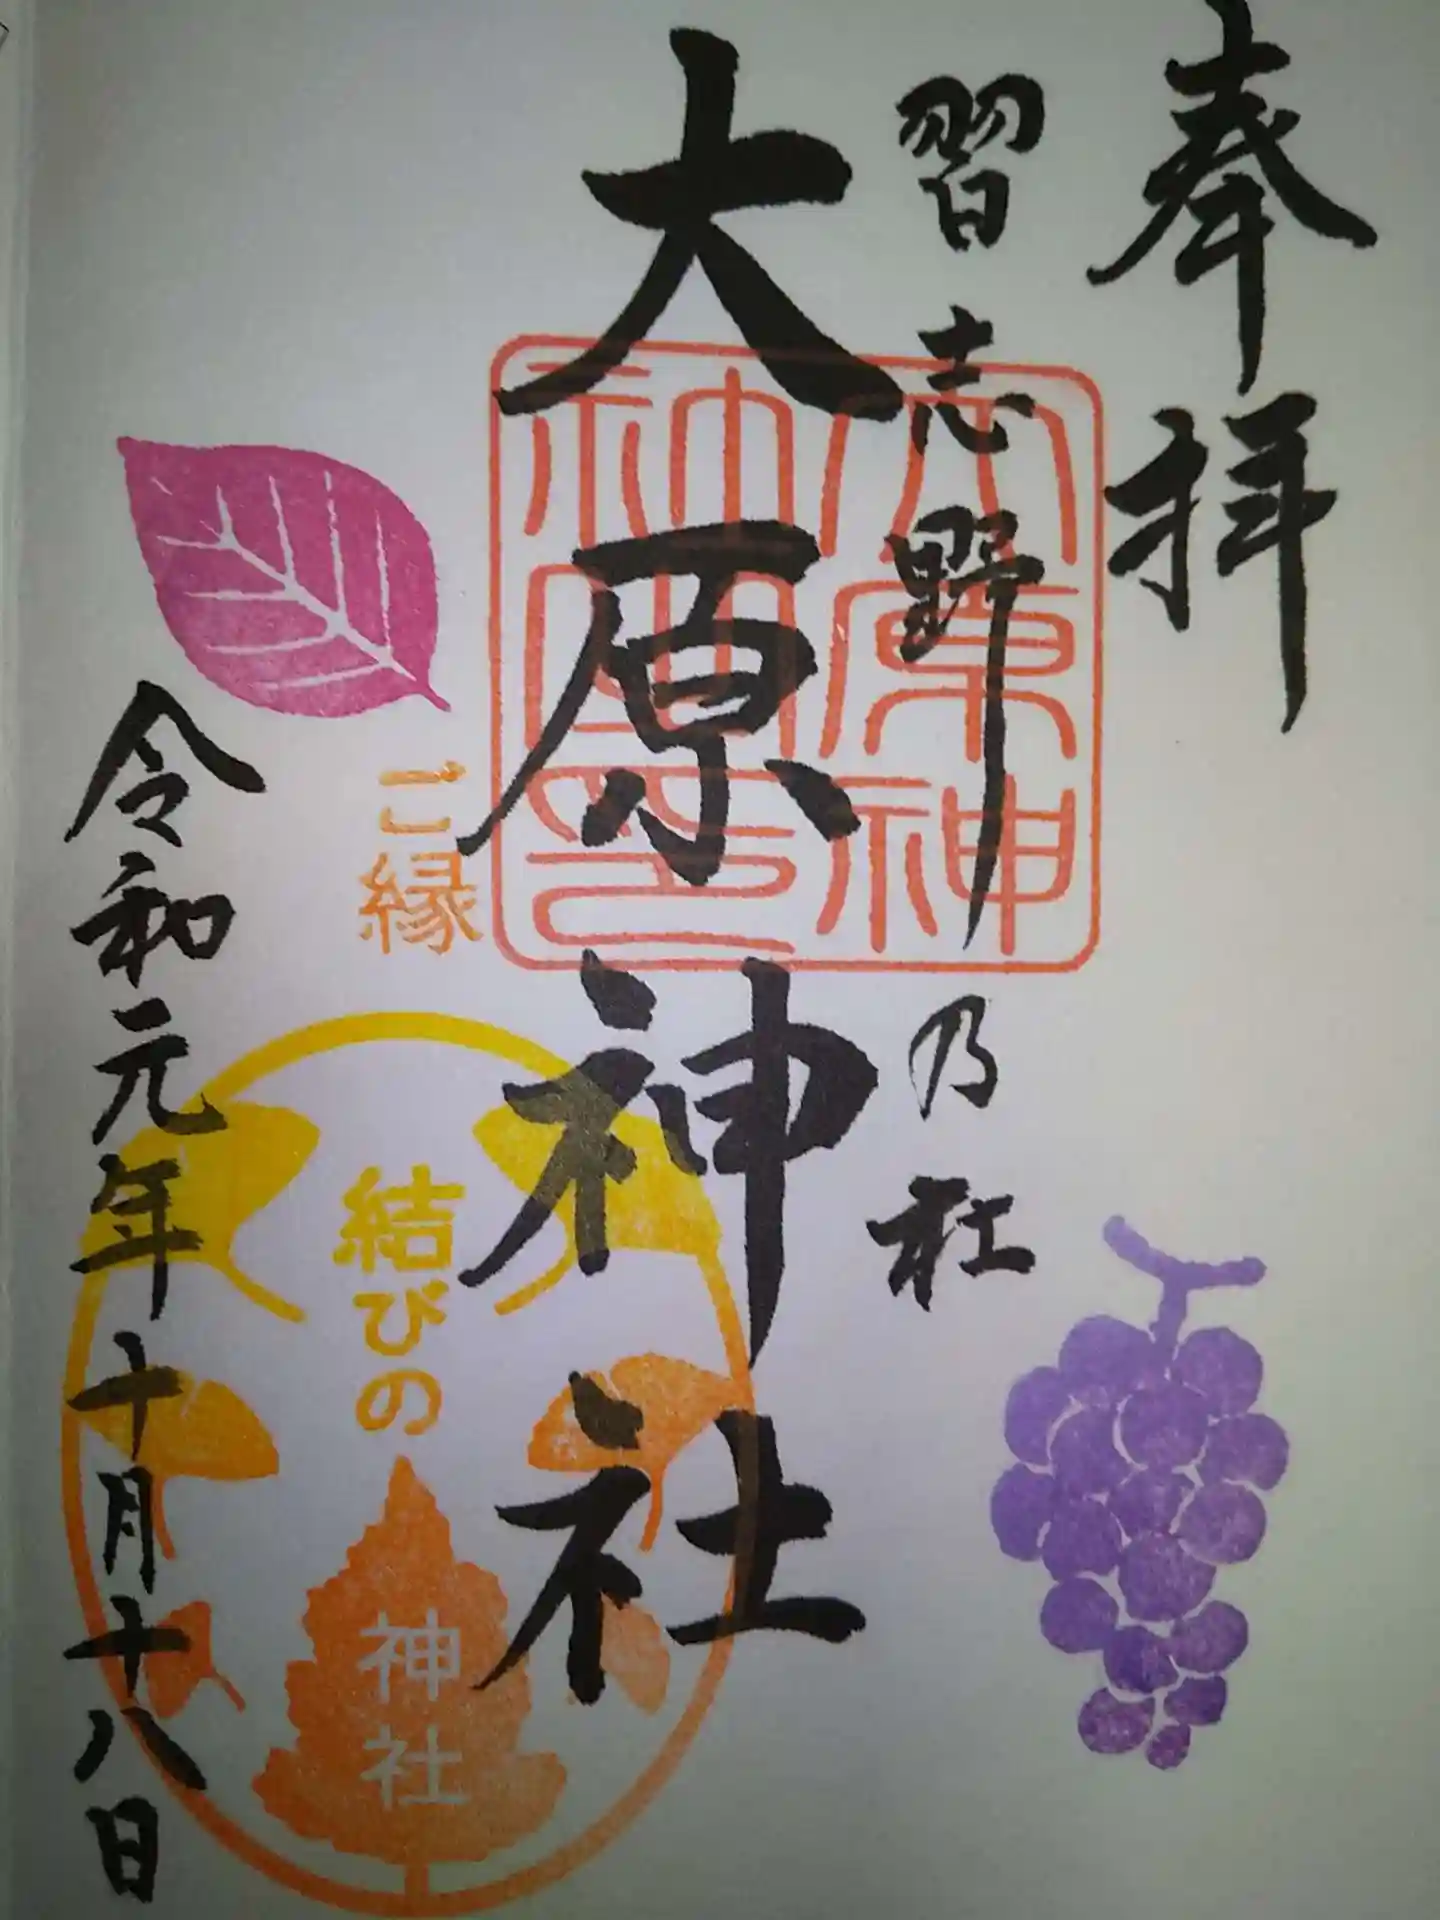 奉拝
習志野乃社
大原神社
大原神
社之印
ご縁
結びの
神社
令和元年十月十八日